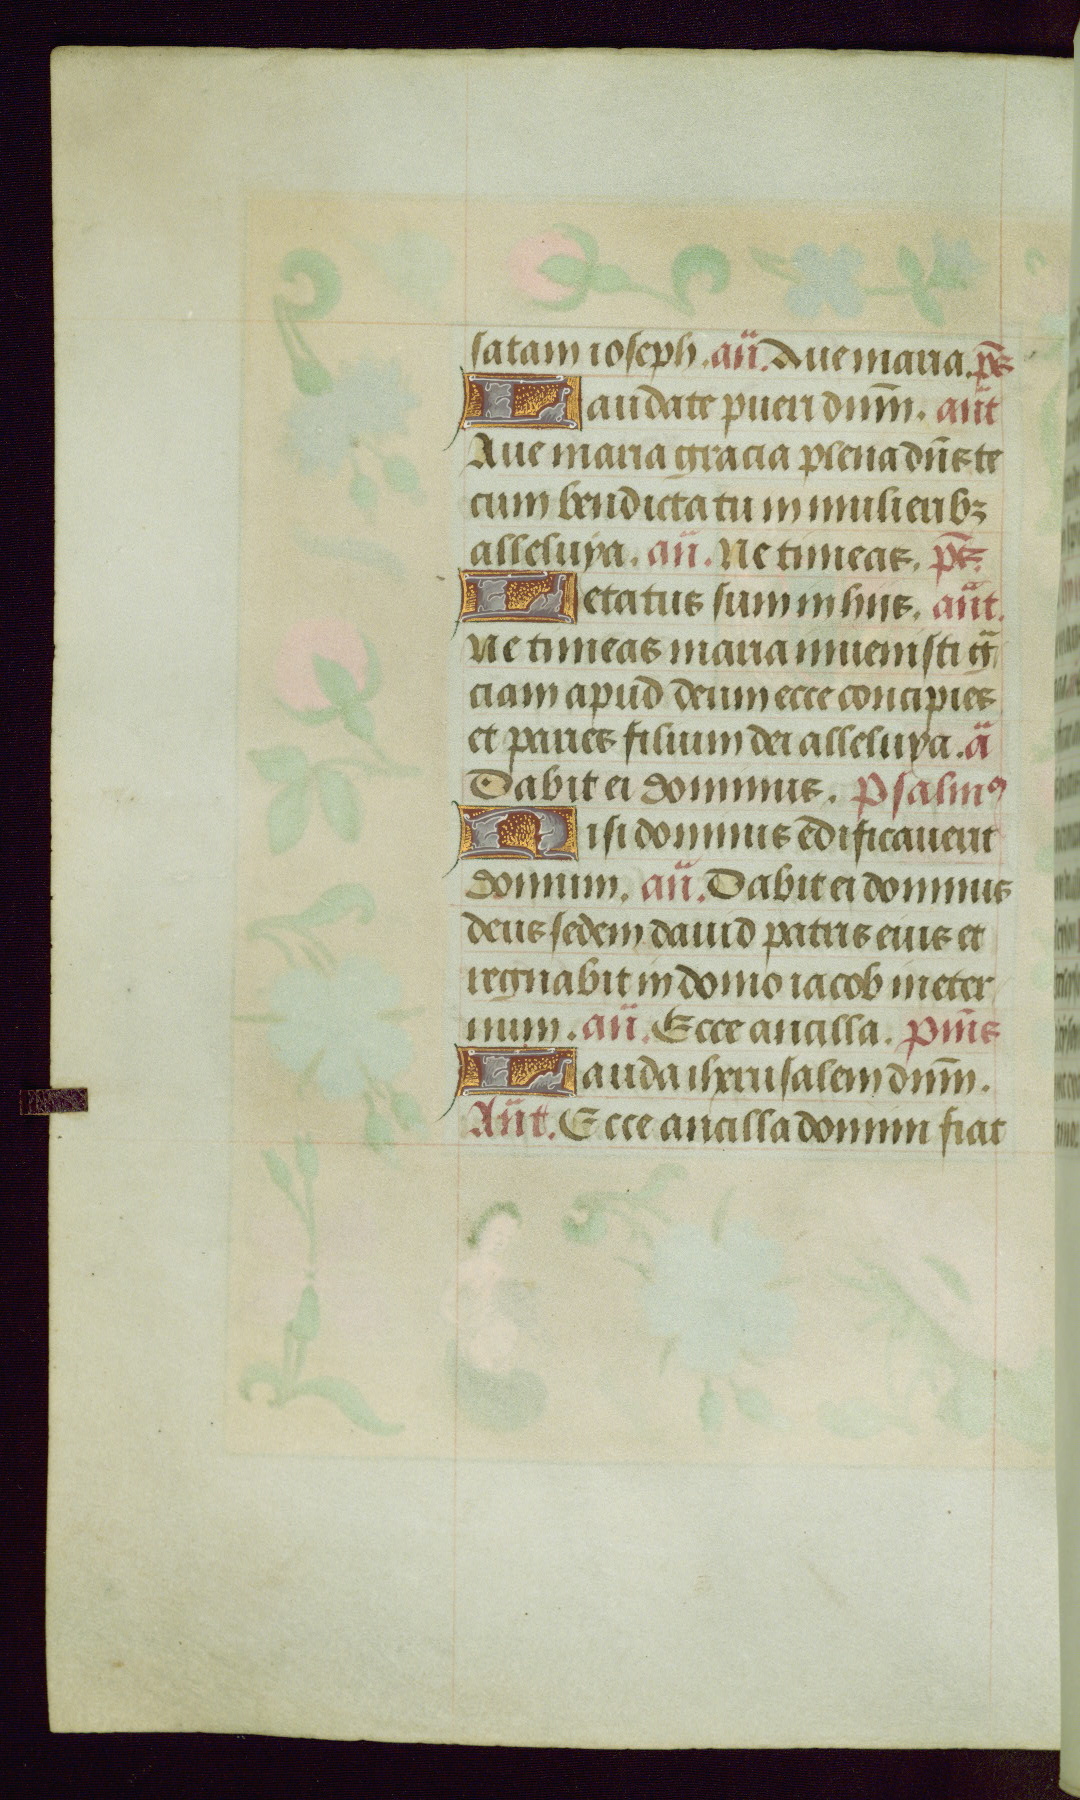 satam ioseph. an̄. Aue maria. ps̄
Laudate pueri dnm̄. ant̄
Aue maria gracia plena dn̄s te
cum bendicta tu in mulieribꝫ
alleluya. an̄. Ne timeas. ps̄.
Letatus sum in hiis. ant̄.
Ne timeas maria inuenisti gͣ
ciam apud deum ecce concipies
et paries filium dei alleluya. a̅
Dabit ei dominus. Psalmꝰ
Nisi dominus edificauerit
domum. an̄. Dabit ei dominus
deus sedem dauid patris eius et
regnabit in domo iacob in eter
num. an̄. Ecce ancilla. pm̄s
Lauda iherusalem dnm̄.
Ant̄. Ecce ancilla domini fiat